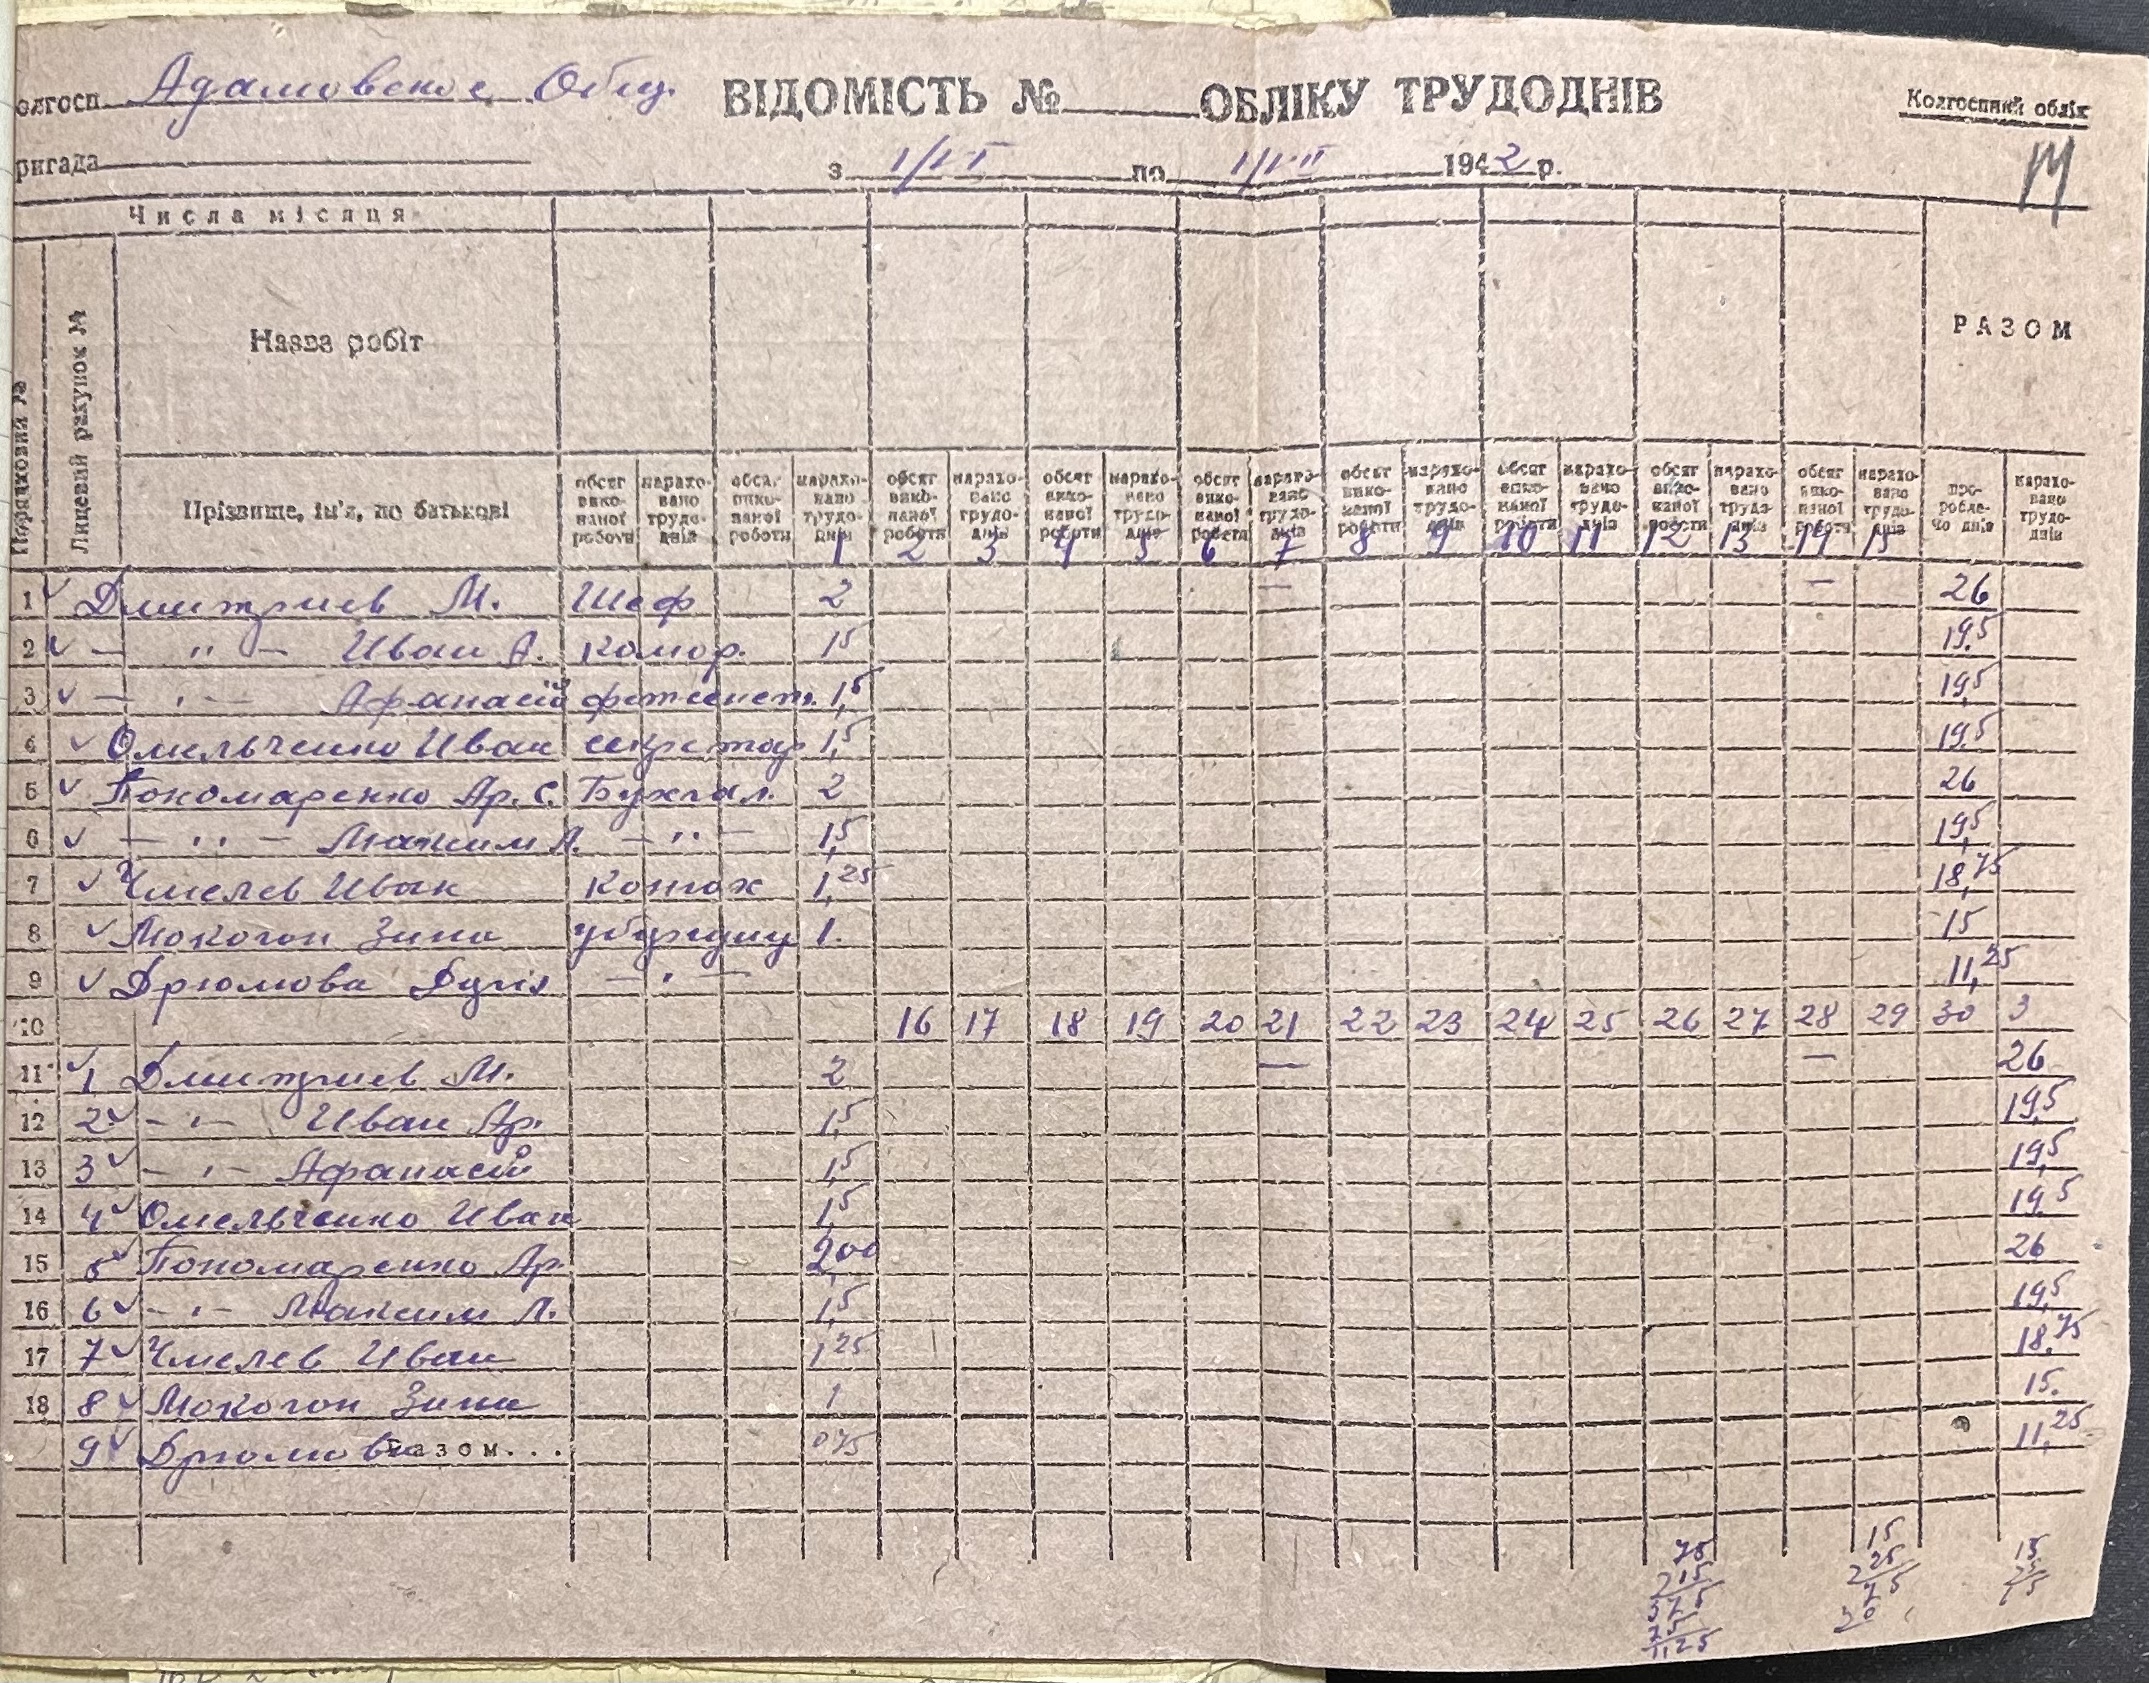 олгосп Адамовское Общ. ВІДОМІСТЬ № ОБЛІКУ ТРУДОДНІВ Колгоспний облік
ригада з 1/VI по 1/VII 1942 р.
Числа місяця
Порядковий № Лицевий рахунок № Назва робіт РАЗОМ
Прізвище, ім'я, по батькові обсяг виконаної роботи нараховано трудоднів обсяг виконаної роботи нараховано трудоднів обсяг виконаної роботи нараховано трудоднів обсяг виконаної роботи нараховано трудоднів обсяг виконаної роботи нараховано трудоднів обсяг виконаної роботи нараховано трудоднів обсяг виконаної роботи нараховано трудоднів обсяг виконаної роботи нараховано трудоднів обсяг виконаної роботи нараховано трудоднів про-робле-но днів нараховано трудоднів
1 2 3 4 5 6 7 8 9 10 11 12 13 14 15
1 ✓ Дмитриев М. Шеф 2 — — 26
2 ✓ — " — Иван А. Комор. 15 19.5
3 ✓ — " — Афанасий 1,5 19,5
4 ✓ Омельченко Иван секретар 1,5 19.5
5 ✓ Пономаренко Ар. С. Бухгал. 2 26
6 ✓ — " — Максим Л. — " — 1,5 19,5
7 ✓ Чмелев Иван Конюх 1,25 18,75
8 ✓ Мокогон Зина 1. 15
9 ✓ Дрюмова Дуня — " — 11,25
10 16 17 18 19 20 21 22 23 24 25 26 27 28 29 30 3
11 ✓ 1 Дмитриев М. 2 — — 26
12 2 ✓ — " — Иван Ар. 1,5 19,5
13 3 ✓ — " — Афанасий 1,5 19,5
14 4 ✓ Омельченко Иван 1,5 19,5
15 5 ✓ Пономаренко Ар. 2,00 26
16 6 ✓ — " — Максим Л. 1,5 19,5
17 7 ✓ Чмелев Иван 1,25 18.75
18 8 ✓ Мокогон Зина 1 15.
9 ✓ Дрюмова Разом... 075 11,25
75 15 15
215 225
375 75
75 20
1125